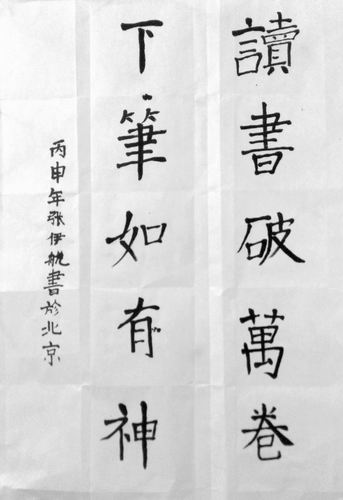 讀書破萬卷
下筆如有神
丙申年张伊航書於北京